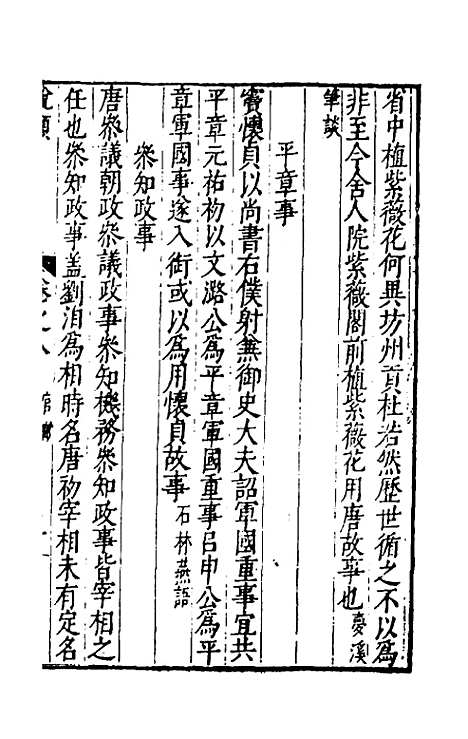 省中植紫薇花何異坊州貢杜若然歷世循之不以爲
非至今舍人院紫薇閣前植紫薇花用唐故事也夢溪
筆談
平章事
竇懷貞以尚書右僕射兼御史大夫詔軍國重事宜共
平章元祐初以文潞公爲平章軍國重事呂申公爲平
章軍國事遂入銜或以爲用懷貞故事石林燕語
叅知政事
唐叅議朝政叅議政事叅知機務叅知政事皆宰相之
任也叅知政事蓋劉洎爲相時名唐初宰相未有定名
說類
卷之八